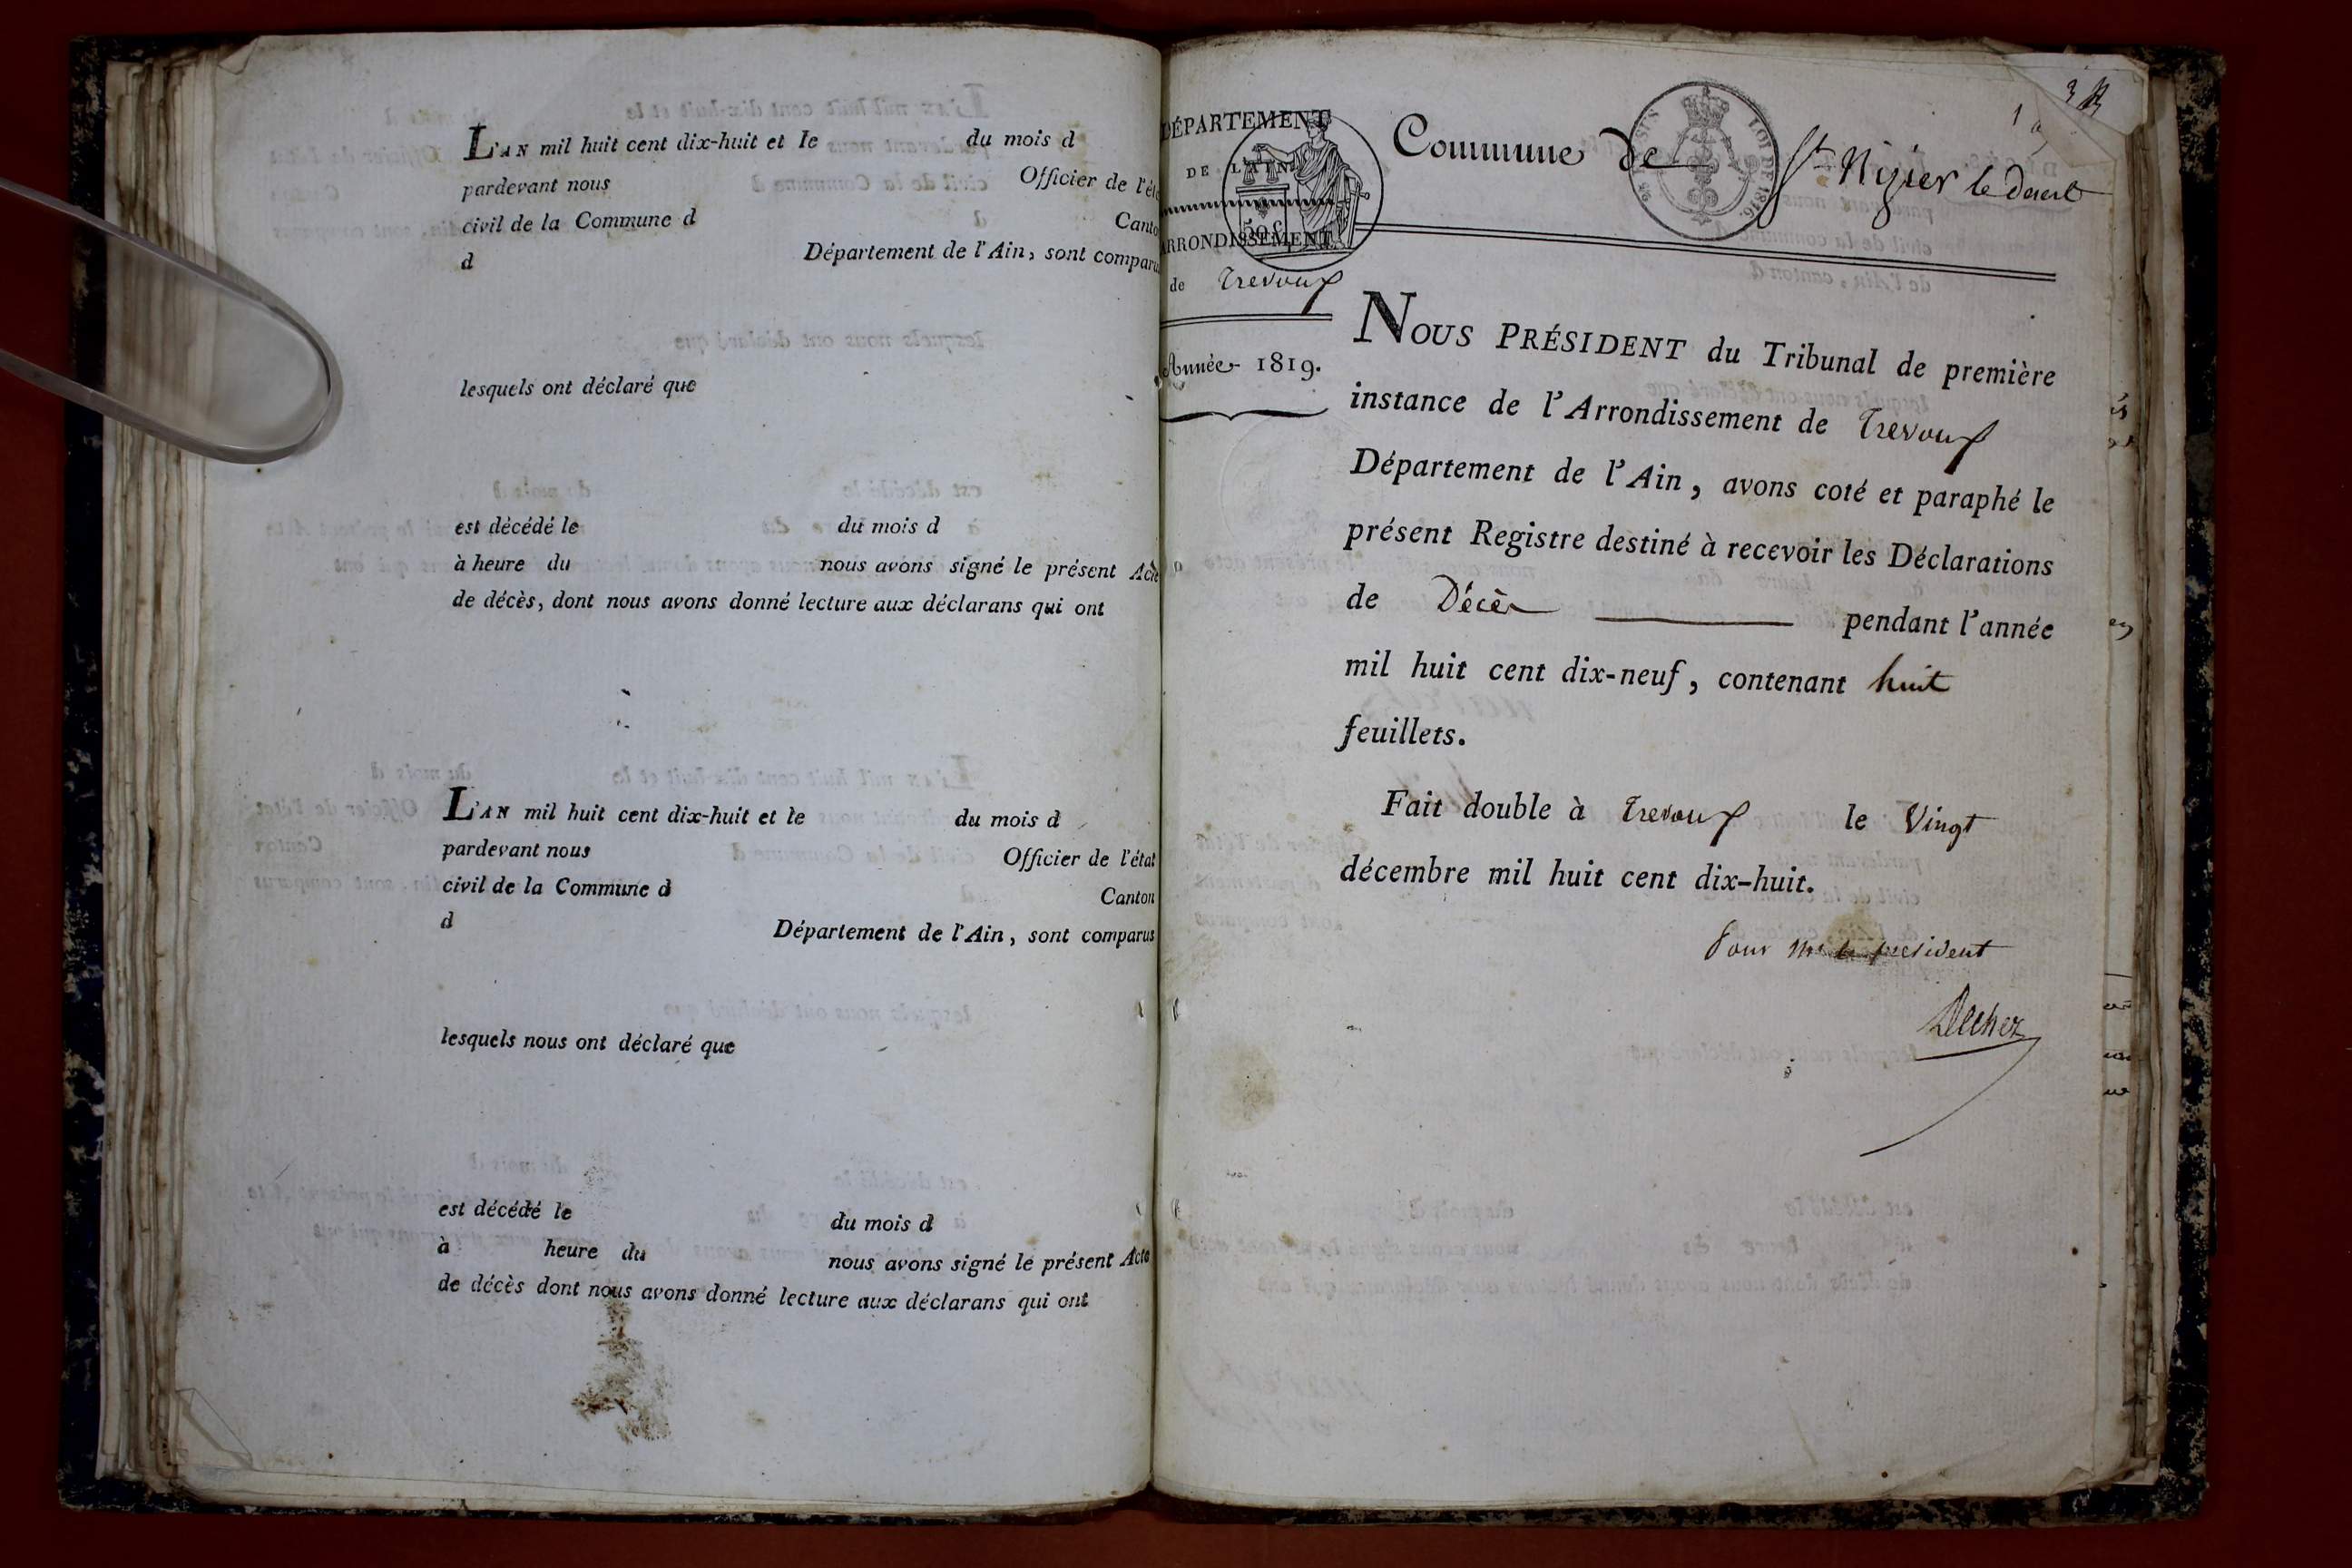 L'AN mil huit cent dix-huit et le du mois d
pardevant nous Officier de l'éta
civil de la Commune d Canto
d Département de l'Ain, sont comparu
lesquels ont déclaré que
est décédé le du mois d
à heure du nous avons signé le présent Acte
de décès, dont nous avons donné lecture aux déclarans qui ont
L'AN mil huit cent dix-huit et le du mois d
pardevant nous Officier de l'état
civil de la Commune d Canton
d Département de l'Ain, sont comparus
lesquels nous ont déclaré que
est décédé le du mois d
à heure du nous avons signé le présent Acte
de décès dont nous avons donné lecture aux déclarans qui ont
DÉPARTEMENT
DE L'AIN
50 c.
ARRONDISSEMENT
de Trevoux
Année 1819.
Commune de St Nizier le desert
LOI DE 1816.
NOUS PRÉSIDENT du Tribunal de première
instance de l'Arrondissement de Trevoux
Département de l'Ain, avons coté et paraphé le
présent Registre destiné à recevoir les Déclarations
de Décès pendant l'année
mil huit cent dix-neuf, contenant huit
feuillets.
Fait double à Trevoux le Vingt
décembre mil huit cent dix-huit.
Pour Mr le president